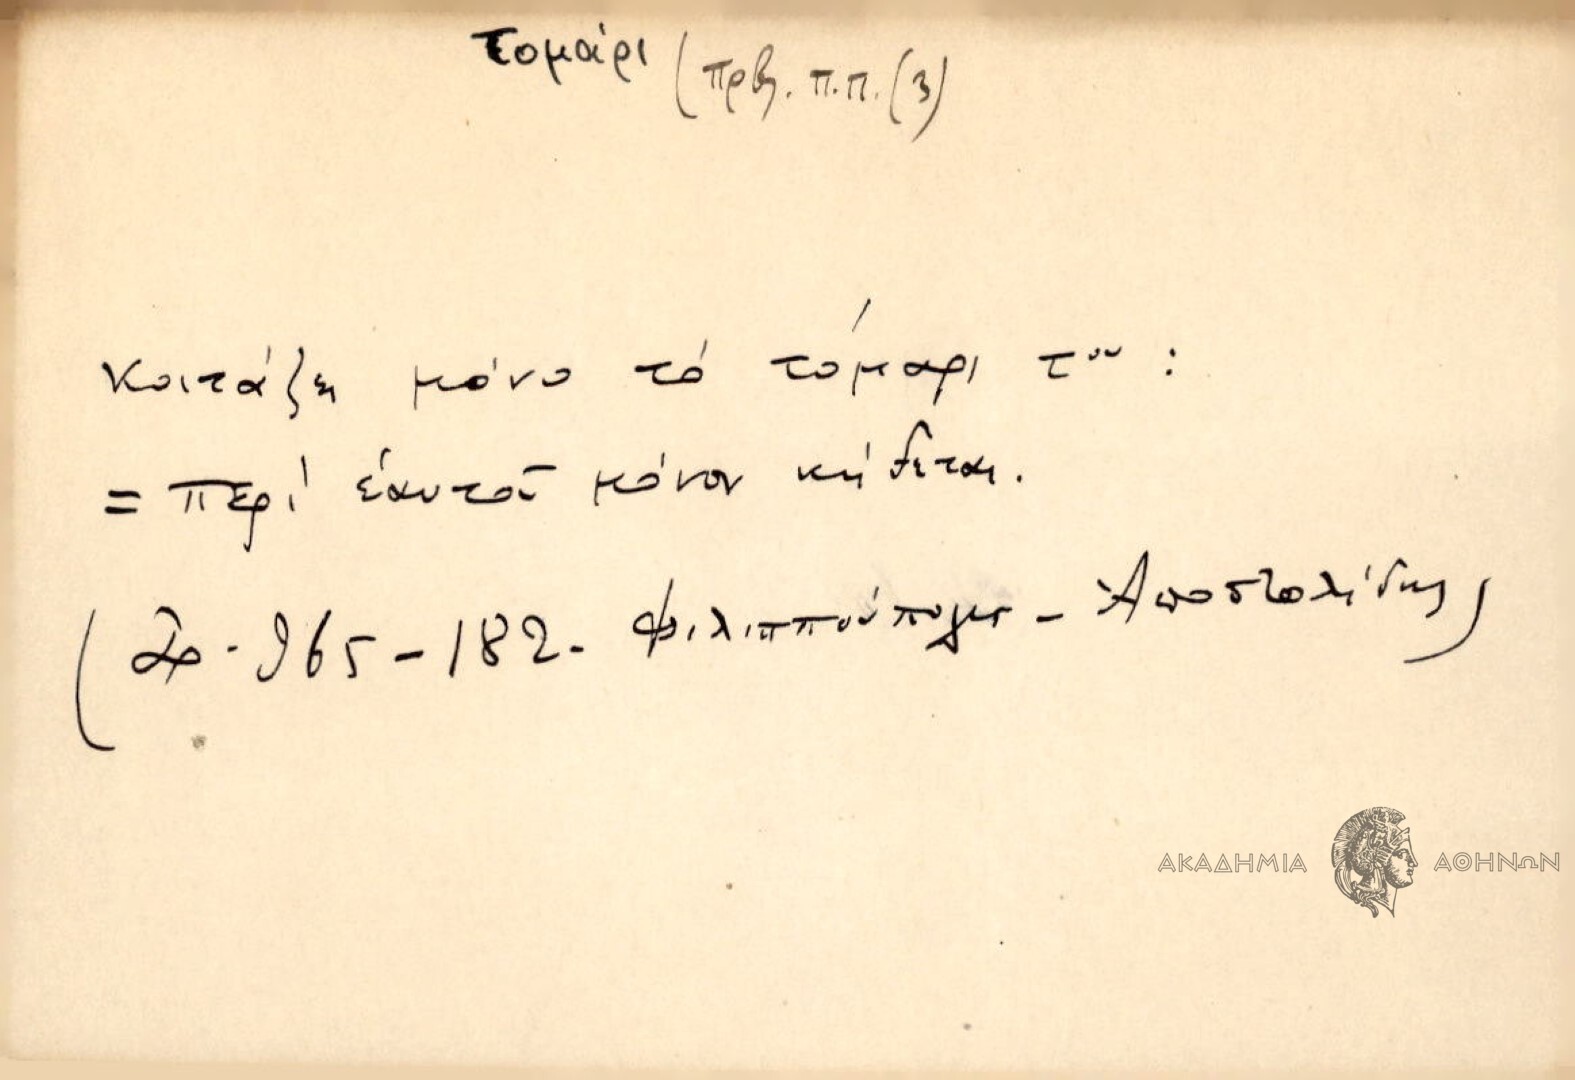 τομάρι (πρβ. π.π. (3)
Κοιτάζει μόνο τό τόμαρι του :
= περί ἑαυτοῦ μόνον κήδεται.
965 - 182. Φιλιππούπολις - Ἀποστολίδης)
ΑΚΑΔΗΜΙΑ ΑΘΗΝΩΝ